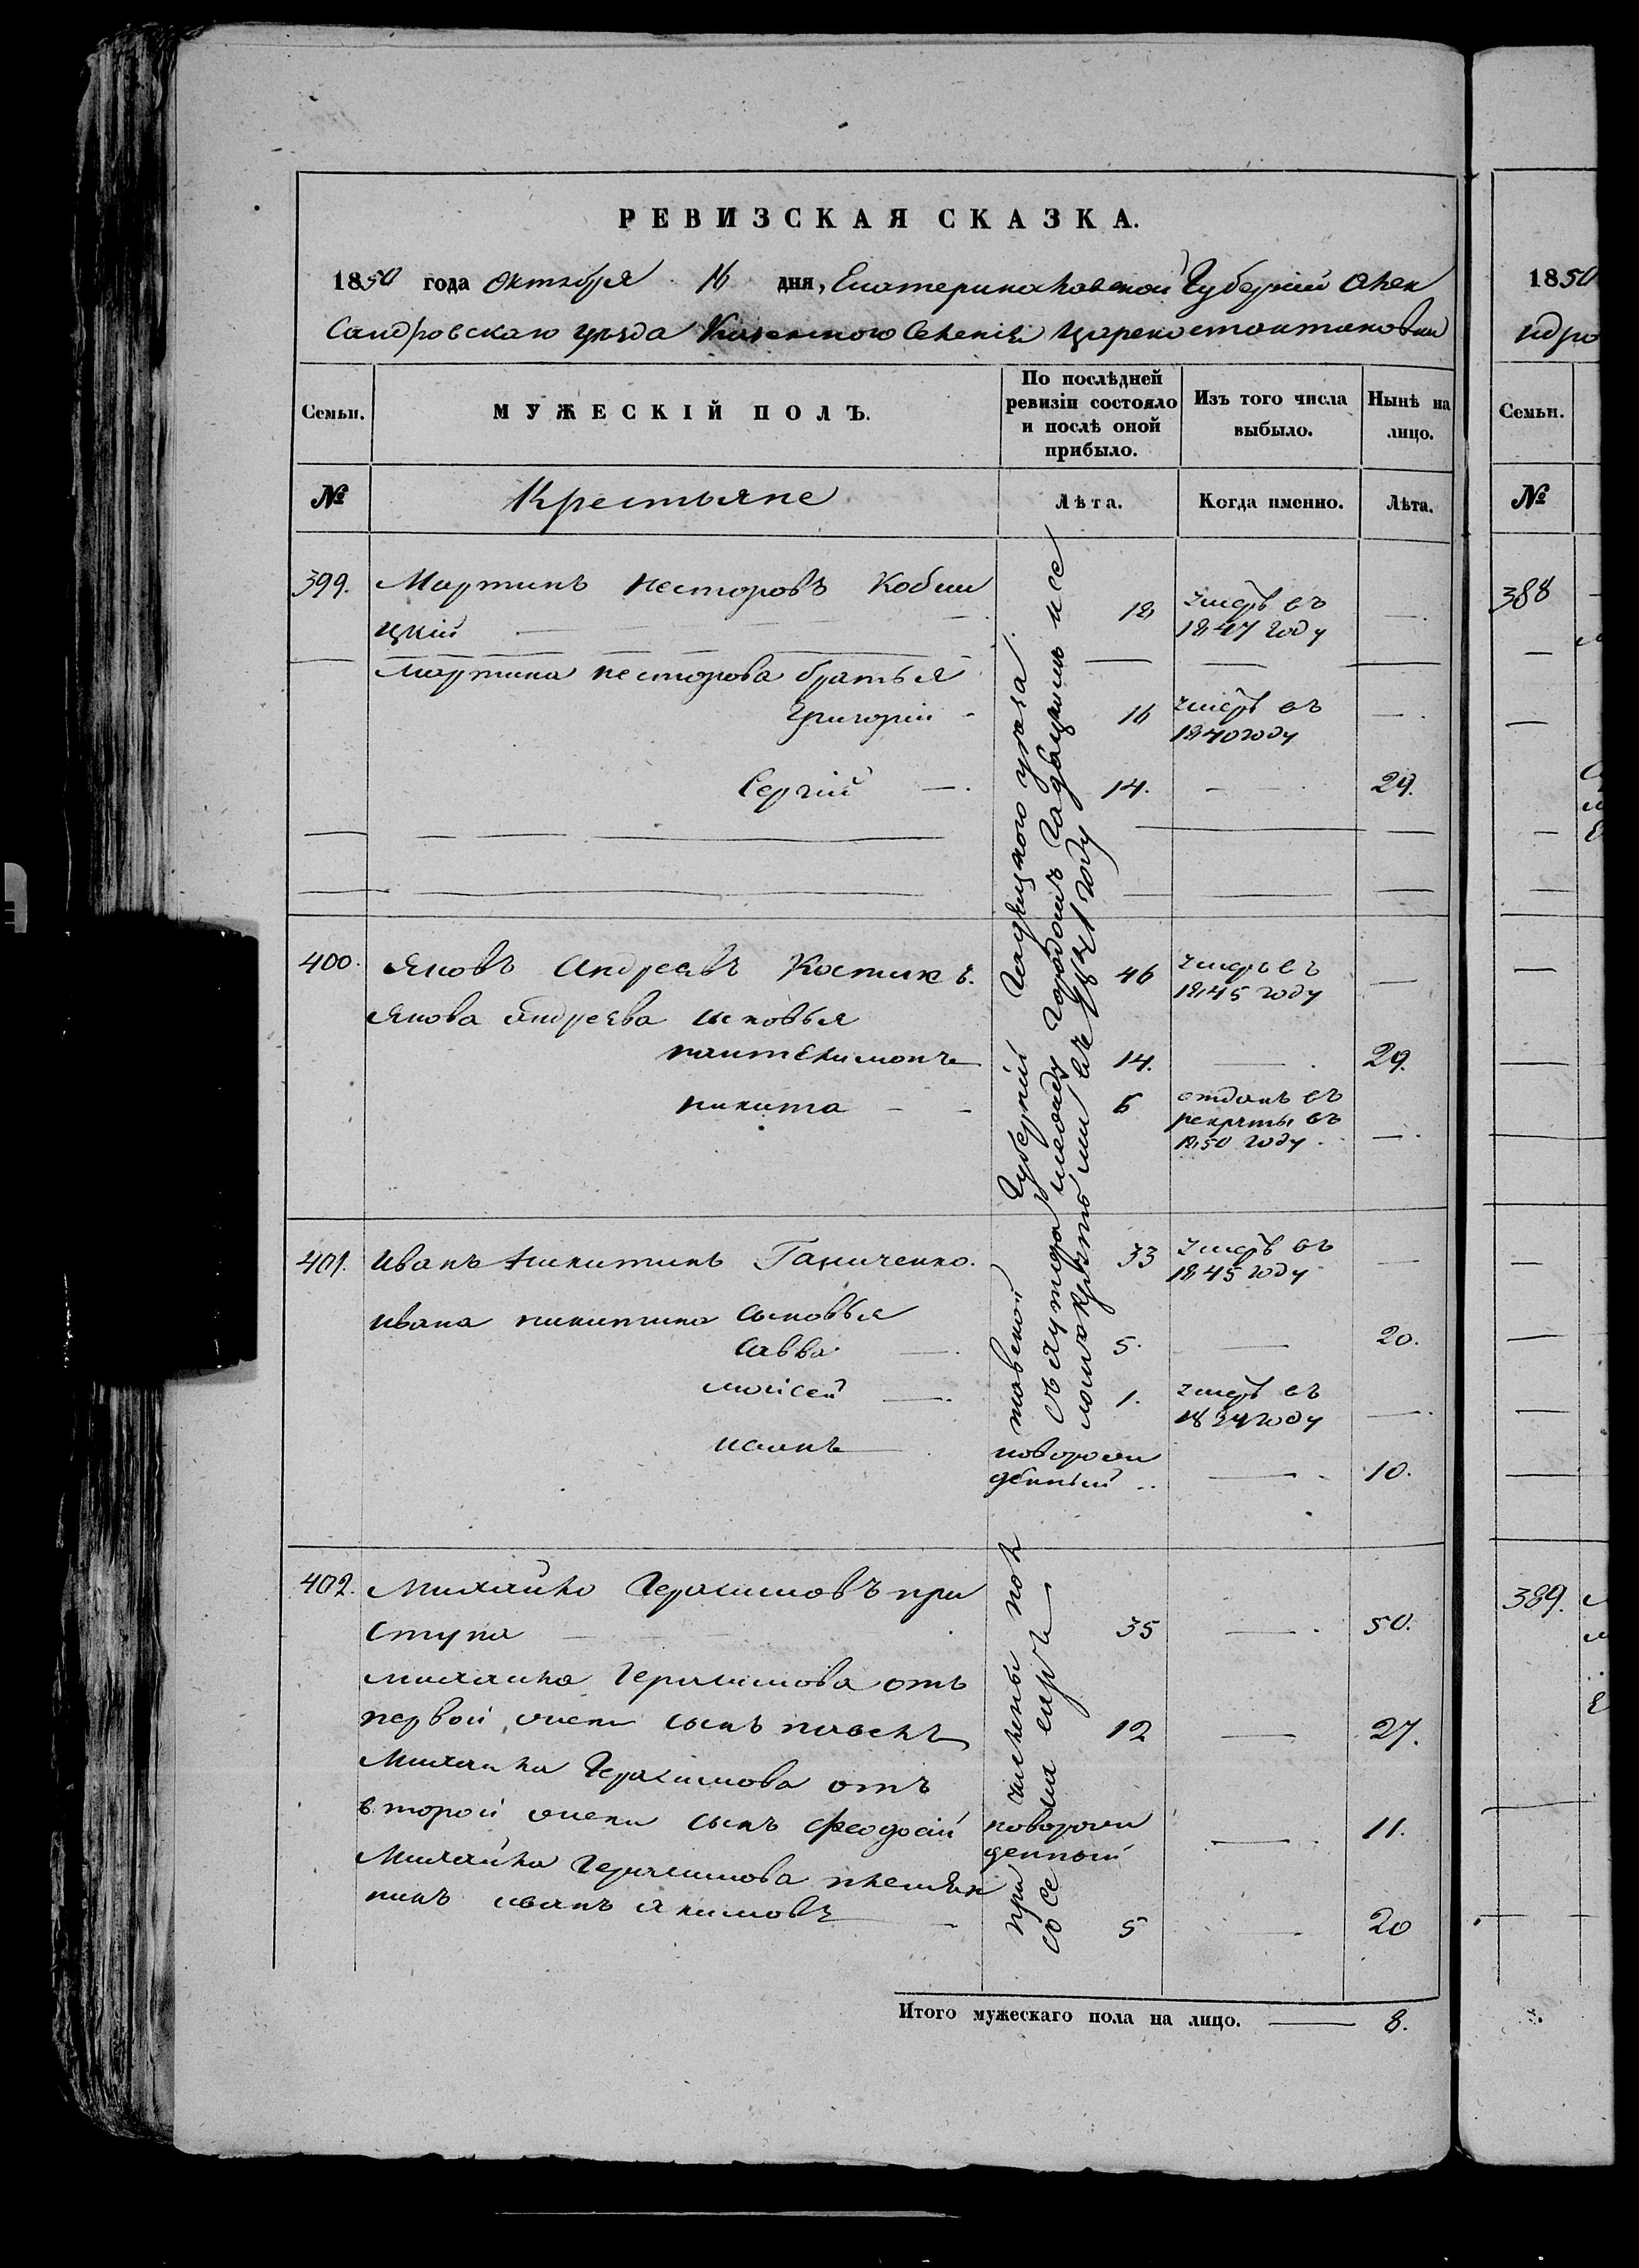 РЕВИЗСКАЯ СКАЗКА.
1850 года Октября 16 дня, Екатеринославской Губерніи Алек
сандровскаго уѣзда Казенного Селенія Цареконстантиновки
Семьи.
МУЖЕСКІЙ ПОЛЪ.
По послѣдней
ревизіи состояло
и послѣ оной
прибыло.
Изъ того числа
выбыло.
Нынѣ на
лицо.
№
Крестьяне
Лѣта.
Когда именно.
Лѣта.
399. Мартинъ Несторовъ Кобы
цкій — 18 умеръ въ
1847 году —
Мартина Несторова братья
Григорій - 16 умеръ въ
1840 году —
Сергій — 14. — 29.
400. Яковъ Андреевъ Костикъ. 46 умеръ въ
1845 году —
Якова Андреева сыновья
Пантелимонъ 14. — 29.
Никита - - 6 отданъ въ
рекруты въ
1850 году —
401. Иванъ Никитинъ Ганиченко. 33 умеръ въ
1845 году —
Ивана Никитина сыновья
Савва — 5. — 20.
Моисей — 1. умеръ въ
1834 году —
Исакъ — новорож
денный — 10.
402. Михайло Герасимовъ При
ступа — 35 — 50.
Михайла Герасимова отъ
первой жены сынъ Павелъ 12 — 27.
Михайла Герасимова отъ
второй жены сынъ Феодосій новорож
денный — 11.
Михайла Герасимова племян
никъ Иванъ Якимовъ - 5 — 20
причислены Пол тавской Губерніи Гадяцкого уѣзда
со се ла съ хутора между городомъ Гадячимъ и се
въ 1841 году
Итого мужескаго пола на лицо. — 8.
1850
ндро
Семьи.
№
388
389.